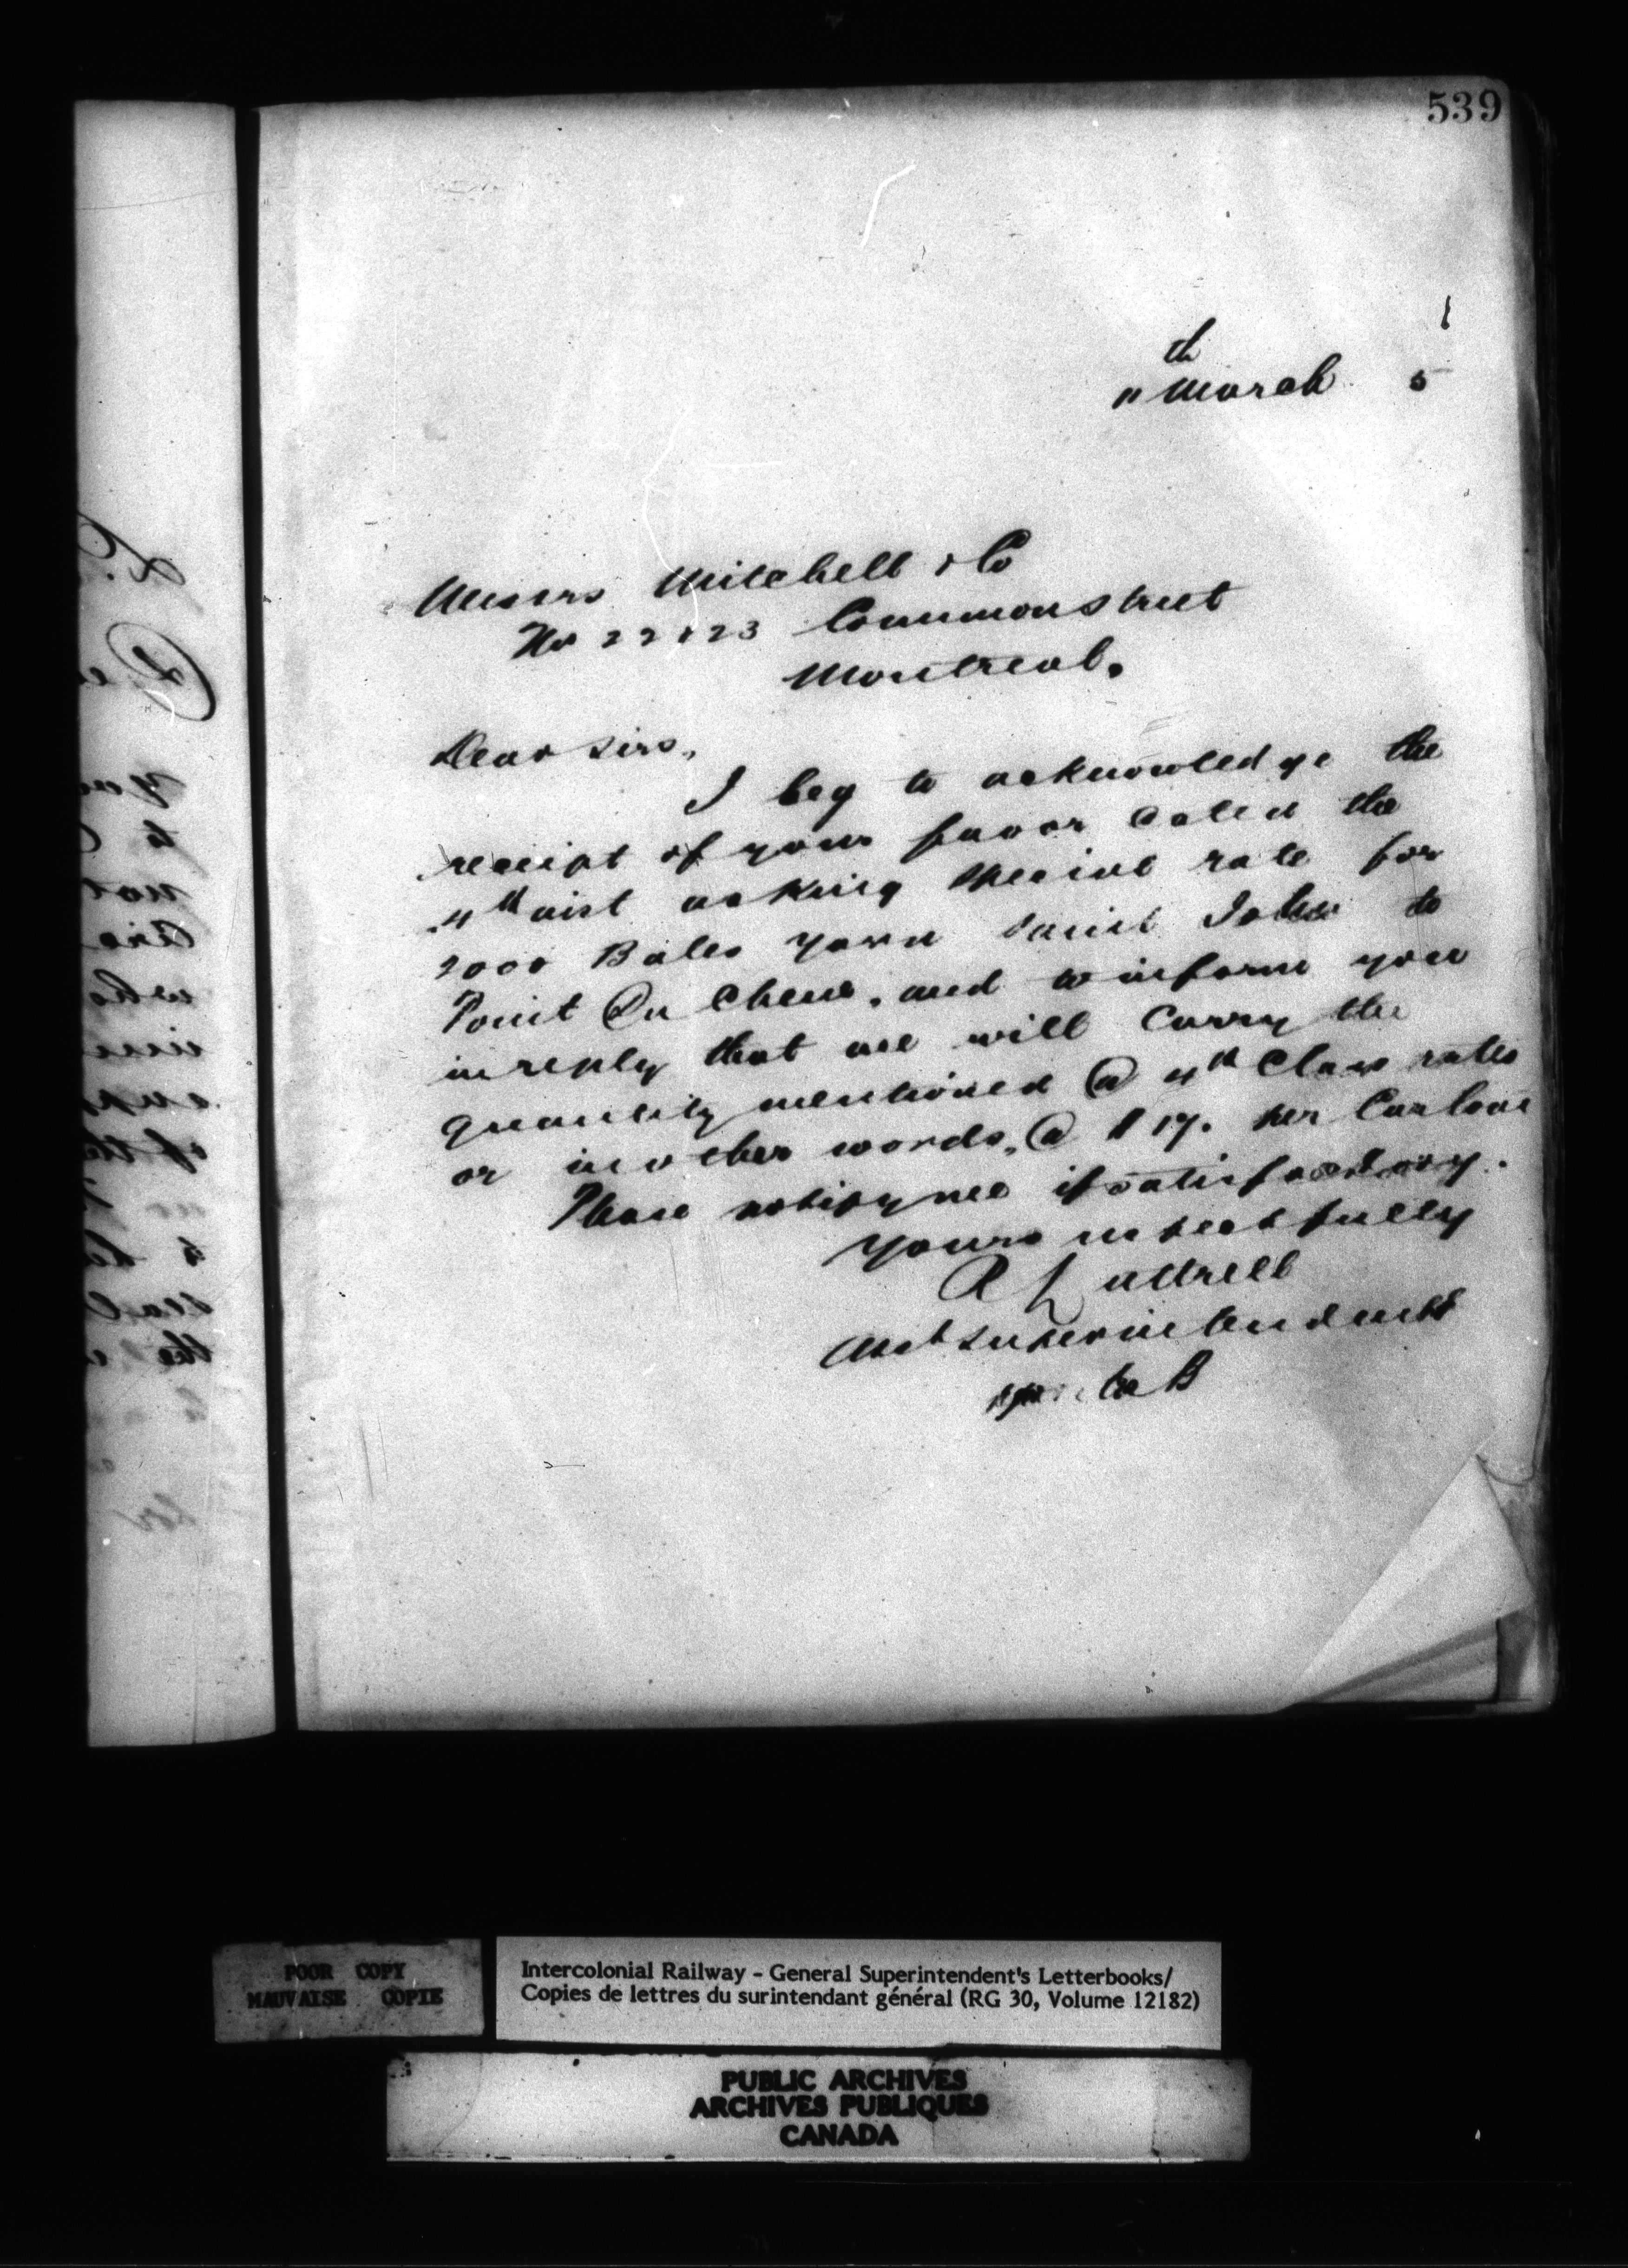 539
11th March 5
Messrs Mitchell & Co
No 22 & 23 Common Street
Montreal.
Dear Sirs,
I beg to acknowledge the
receipt of your favor dated the
4th inst asking special rate for
2000 Bales yarn Saint John to
Point Du Chene, and to inform you
in reply that we will carry the
quantity mentioned @ 4th Class rates
or in other words, @ $17. per Carload
Please notify me if satisfactory.
Yours respectfully
R Luttrell
Asst Superintendent
B
POOR COPY
MAUVAISE COPIE
Intercolonial Railway - General Superintendent's Letterbooks/
Copies de lettres du surintendant général (RG 30, Volume 12182)
PUBLIC ARCHIVES
ARCHIVES PUBLIQUES
CANADA